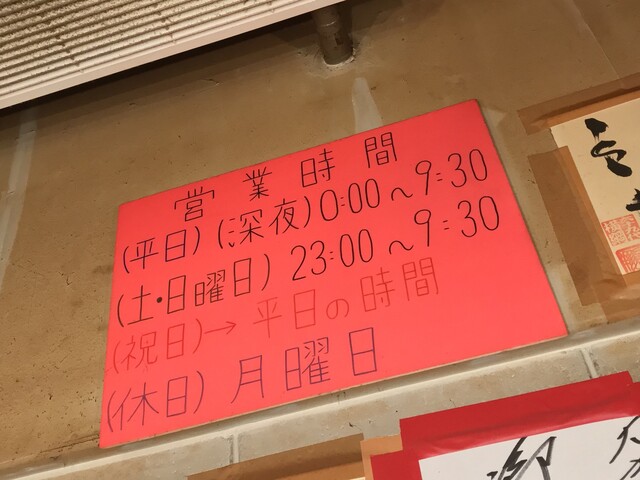 営業時間
(平日)(深夜)0:00～9:30
(土・日曜日) 23:00～9:30
(祝日)→平日の時間
(休日)月曜日